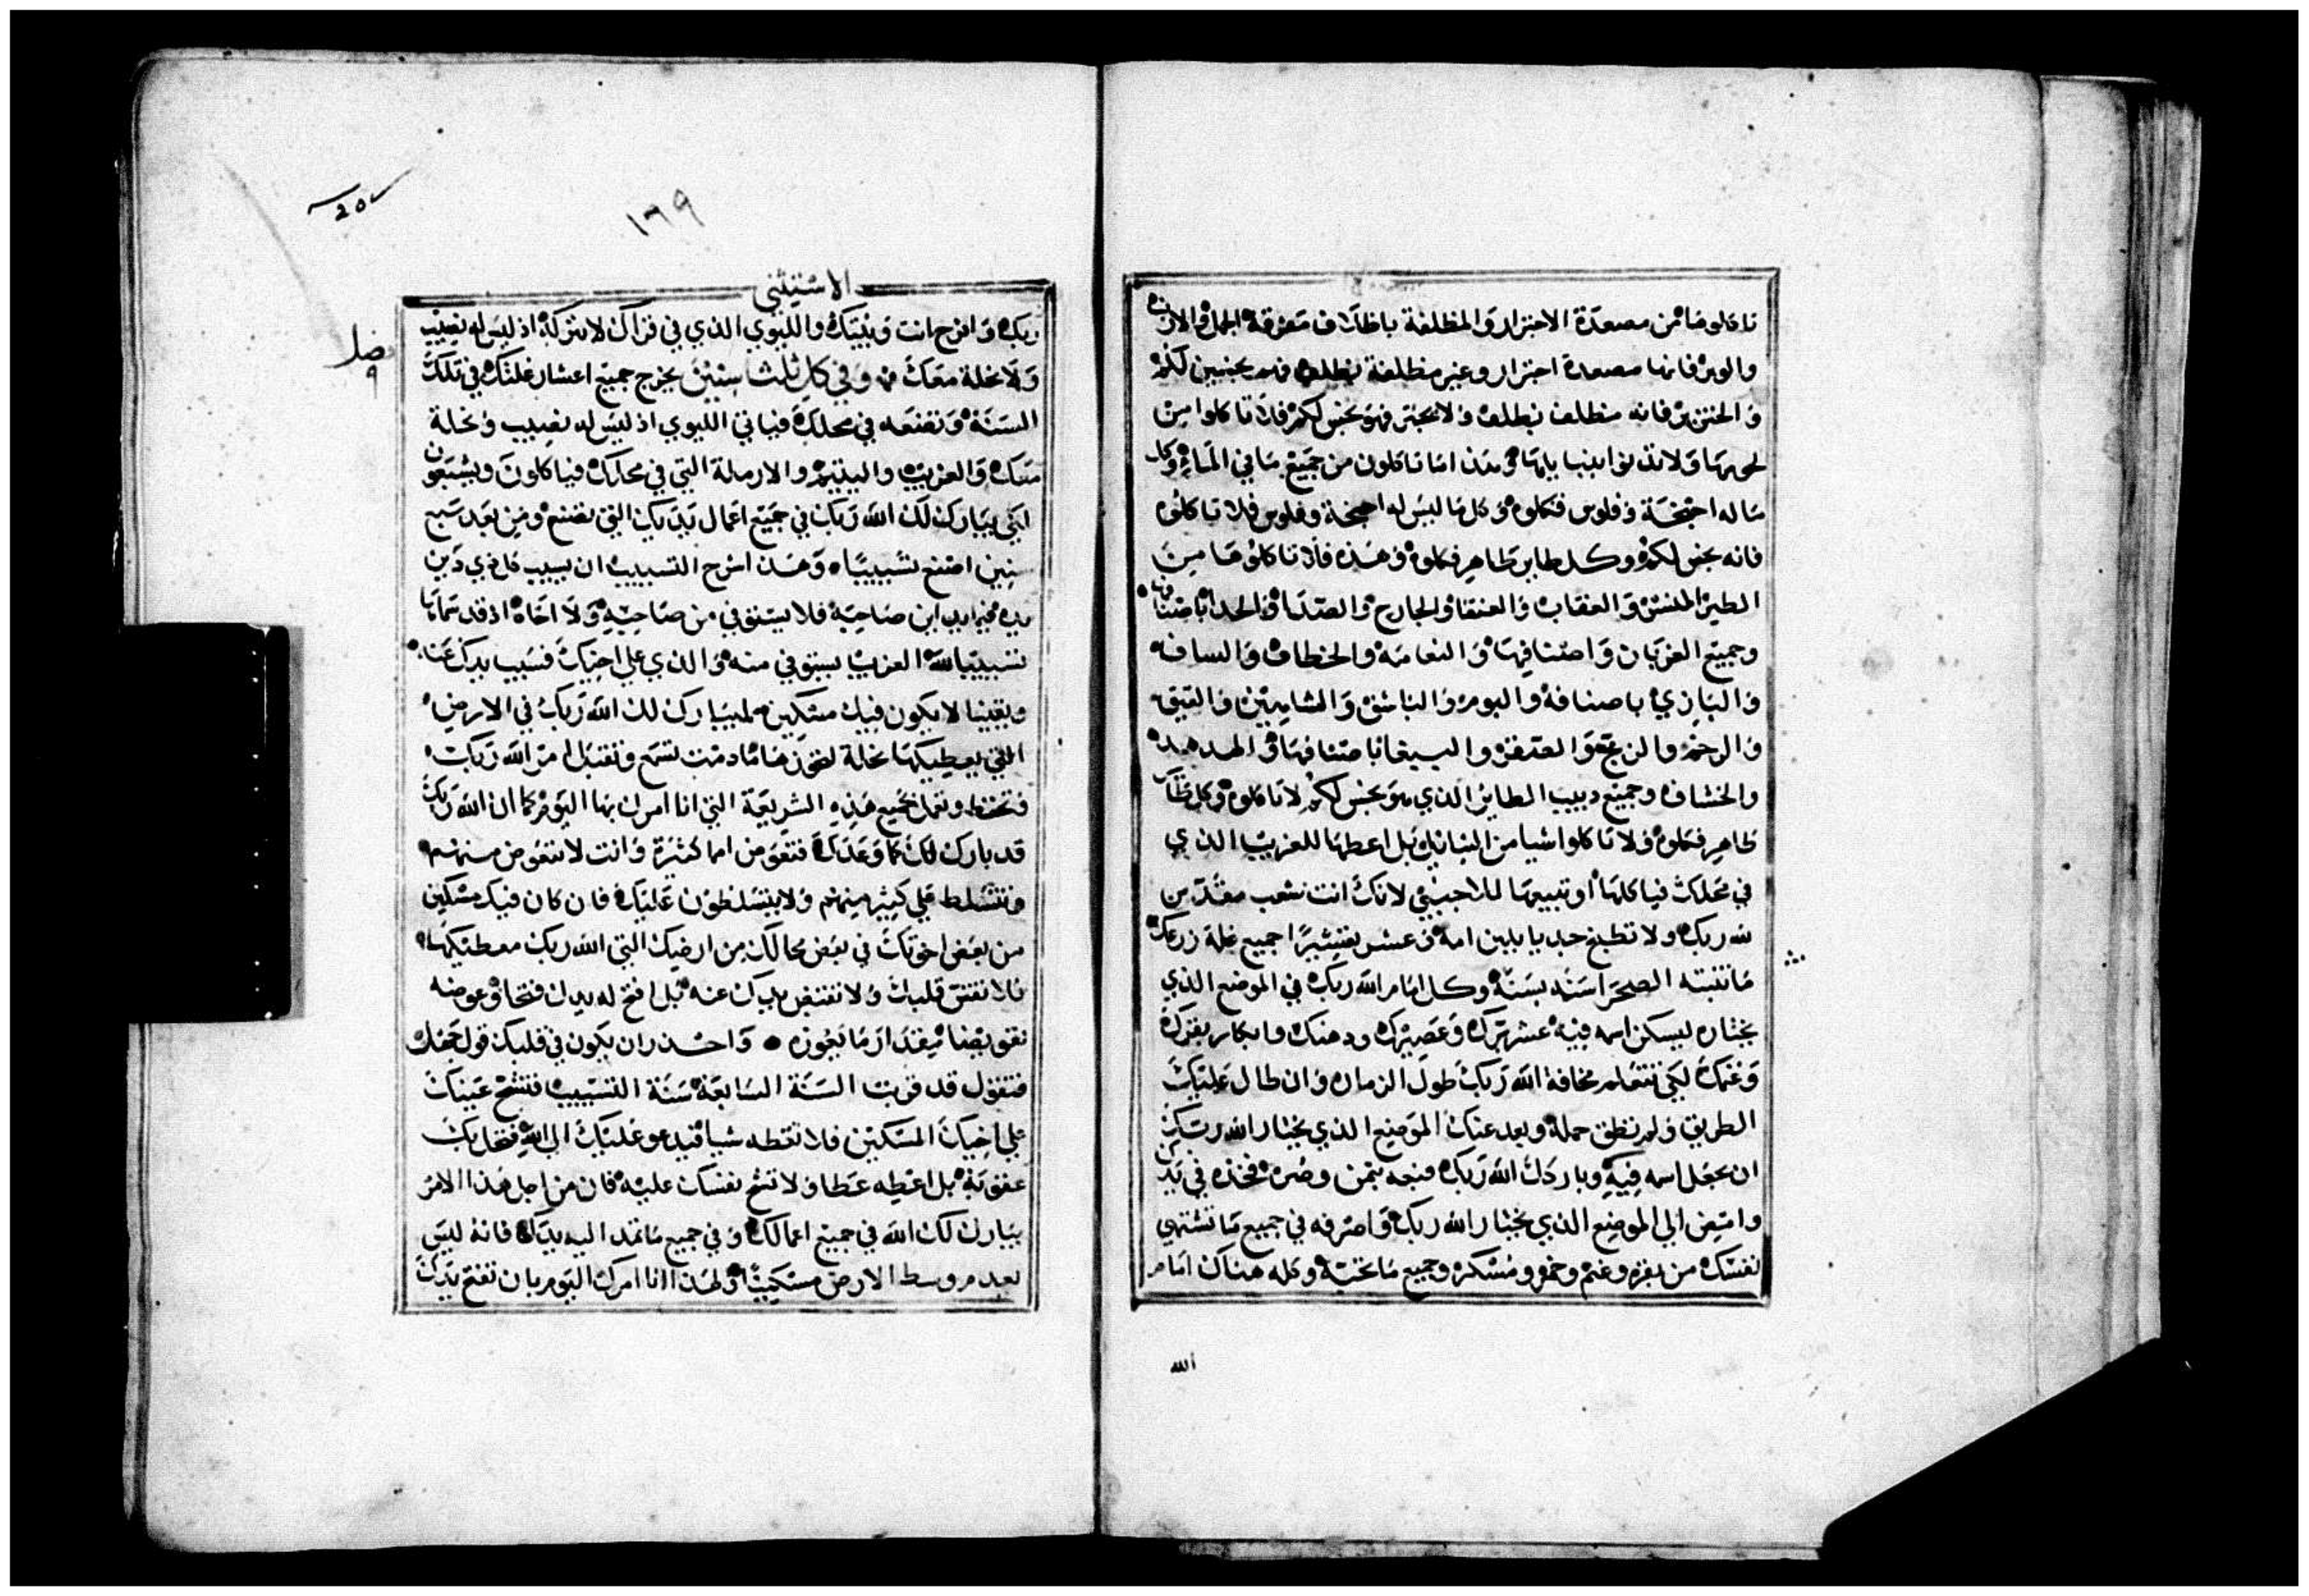 تاكلوها من مصعدة الاجترار والمظلفة باظلاف متفرقة الجمل والارنب
والوبر فانها مصعدة اجترار وغير مظلفة بظلف فهم نجسين لكم
والخنزير فانه مظلف بظلف ولا يجتر فهو نجس لكم فلا تاكلوا من
لحمها ولا تدنوا بنبايلها وهذا ما تاكلون من جميع ما في الماء وكل
ما له اجنحة وفلوس فكلوه وكل ما ليس له اجنحة وفلوس فلا تاكلوه
فانه نجس لكم وكل طاير طاهر فكلوه وهذه فلا تاكلوها من
الطير النسر والعقاب والعنقا والجارح والصدا والحداة باصنافها
وجميع الغربان واصنافها والنعامة والخطاف والساف
والبازي باصنافه والبوم والباشق والشاهين والقيق
والرخم والزمج والعقعق والببغا باصنافها والهدهد
والخشاف وجميع دبيب الطاير الذي هو نجس لكم لا تاكلوه وكل طاير
طاهر فكلوه ولا تاكلوا شيا من النبايل بل اعطها للغريب الذي
في محلك فياكلها او تبيعها للاجنبي لانك انت شعب مقدس
لله ربك ولا تطبخ جديا بلبن امه وعشر تعشيرا جميع غلة زرعك
ما تنبته الصحرا سنه بسنة وكل امام الله ربك في الموضع الذي
يختاره ليسكن اسمه فيه عشر برك وعصيرك ودهنك وابكار بقرك
وغنمك لكي تتعلم مخافة الله ربك طول الزمان وان طال عليك
الطريق ولم تطق حمله وبعد عنك الموضع الذي يختار الله ربك
ان يجعل اسمه فيه وباركك الله ربك فبعه بثمن وصره فخذه في يدك
وامض الى الموضع الذي يختار الله ربك واصرفه في جميع ما تشتهي
نفسك من بقر وغنم وخمر ومسكر وجميع ما تحبه وكله هناك امام
الله
20
١٦٩
الاستثنى
فصل
٩
ربك وافرح انت وبنيك والليوي الذي في قراك لا تتركه اذ ليس له نصيب
ولا نحلة معك وفي كل ثلث سنين يخرج جميع اعشار غلتك في تلك
السنة وتضعه في محلك فياتي الليوي اذ ليس له نصيب ونحلة
معك والغريب واليتيم والارملة التي في محالك فياكلون ويشبعون
لكي يبارك لك الله ربك في جميع اعمال يديك التي تصنع ومن بعد سبع
سنين اصنع تسبيبا وهذا شرح التسبيب ان يسيب كل ذي دين
يده فيما يداين صاحبه فلا يستوفي من صاحبه ولا اخاه اذ قد سماها
تسييبا لله الغريب يستوفي منه والذي على اخيك فسيب يدك عنه
ويقينا لا يكون فيك مسكين ليبارك لك الله ربك في الارض
التي يعطيكها نحلة لتحوزها ما دمت تسمع وتقبل امر الله ربك
وتحفظ وتعمل بجميع هذه الشريعة التي انا امرك بها اليوم كما ان الله ربك
قد بارك لك كما وعدك فتقرض امما كثيرة وانت لا تقترض منهم
وتتسلط على كثير منهم ولا يتسلطون عليك فان كان فيك مسكين
من بعض اخوتك في بعض محالك من ارضك التي الله ربك معطيكها
فلا تقسي قلبك ولا تقبض يدك عنه بل افتح له يدك فتحا وعوضه
تعويضا مقدار ما يعوزه • واحذر ان يكون في قلبك قول جهل
فتقول قد قربت السنة السابعة سنة التسييب فتشح عينك
على اخيك المسكين فلا تعطه شيا فيدعو عليك الى الله فتحل بك
عقوبة بل اعطه عطا ولا تشح نفسك عليه فان من اجل هذا الامر
يبارك لك الله في جميع اعمالك وفي جميع ما تمد اليه يدك فانه ليس
يعدم وسط الارض مسكينا ولهذا انا امرك اليوم بان تفتح يدك